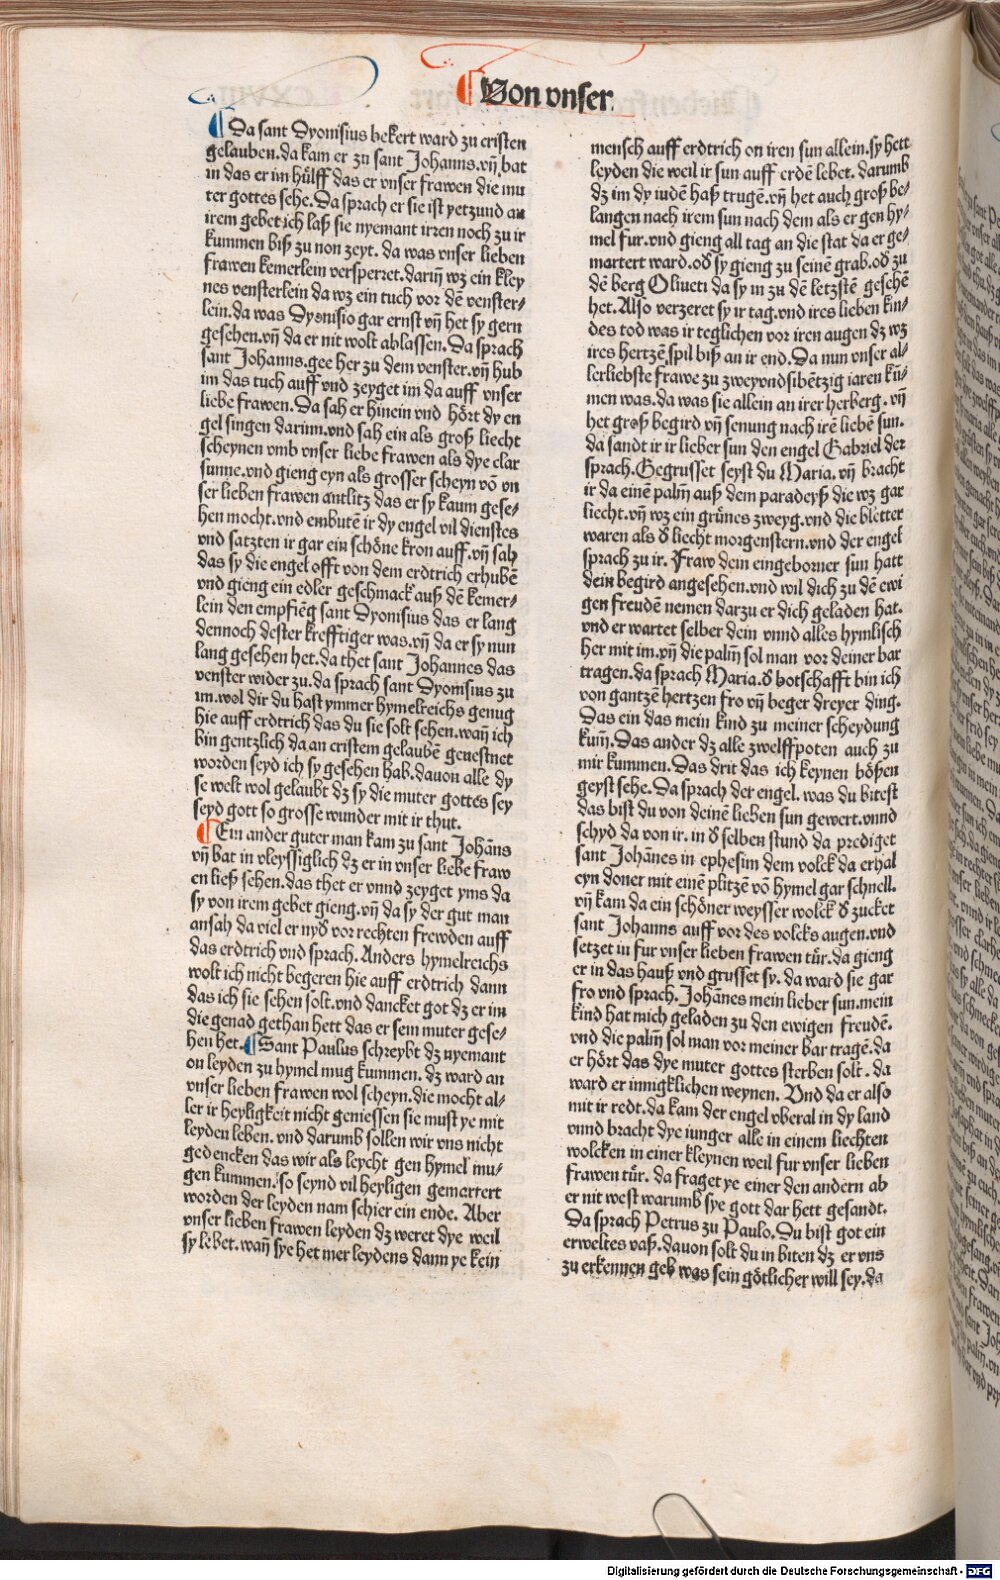 Von vnser
Da sant Dyonisius bekert ward zu cristen
gelauben. da kam er zu sant Johanns. vñ bat
in das er im hülff das er vnser frawen die mu
ter gottes sehe. Da sprach er sie ist yetzund an
irem gebet ich laß sie nyemant irren noch zu ir
kummen biß zu non zeyt. da was vnser lieben
frawen kemerlein versperret. dariñ wz ein kley
nes vensterlein da wz ein tuch vor dē venster⸗
lein. da was Dyonisio gar ernst vñ het sy gern
gesehen. vñ da er nit wolt ablassen. Da sprach
sant Johanns. gee her zu dem venster. vñ hub
im das tuch auff vnd zeyget im da auff vnser
liebe frawen. Da sah er hinein vnd hört dy en
gel singen darinn. vnd sah ein als groß liecht
scheynen vmb vnser liebe frawen als dye clar
sunne. vnd gieng eyn als grosser scheyn vō vn
ser lieben frawen antlitz das er sy kaum gese⸗
hen mocht. vnd embutē ir dy engel vil dienstes
vnd satzten ir gar ein schöne kron auff. vñ sah
das sy die engel offt von dem erdtrich erhubē
vnd gieng ein edler geschmack auß dē kemer⸗
lein den empfieg sant Dyonisius das er lang
dennoch dester krefftiger was. vñ da er sy nun
lang gesehen het. da thet sant Johannes das
venster wider zu. da sprach sant Dyonisius zu
im. wol dir du hast ymmer hymelreichs genug
hie auff erdtrich das du sie solt sehen. wañ ich
bin gentzlich da an cristem gelaubē geuestnet
worden seyd ich sy gesehen hab. dauon alle dy
se welt wol gelaubt dz sy die muter gottes sey
seyd gott so grosse wunder mit ir thut.
Ein ander guter man kam zu sant Johāns
vñ bat in vleyssiglich dz er in vnser liebe fraw
en ließ sehen. das thet er vnnd zeyget yms da
sy von irem gebet gieng. vñ da sy der gut man
ansah da viel er nyd vor rechten frewden auff
das erdtrich vnd sprach. Anders hymelreichs
wolt ich nicht begeren hie auff erdtrich dann
das ich sie sehen solt. vnd dancket got dz er im
die genad gethan hett das er sein muter gese⸗
hen het. Sant Paulus schreybt dz nyemant
on leyden zu hymel mug kummen. dz ward an
vnser lieben frawen wol scheyn. die mocht al⸗
ler ir heyligkeit nicht geniessen sie must ye mit
leyden leben. vnd darumb sollen wir vns nicht
gedencken das wir als leycht gen hymel mu⸗
gen kummen. so seynd vil heyligen gemartert
worden der leyden nam schier ein ende. Aber
vnser lieben frawen leyden dz weret dye weil
sy lebet. wañ sye het mer leydens dann ye kein
mensch auff erdtrich on iren sun allein. sy hett
leyden die weil ir sun auff erdē lebet. darumb
dz im dy iudē haß trugē. vñ het auch groß be⸗
langen nach irem sun nach dem als er gen hy⸗
mel fur. vnd gieng all tag an die stat da er ge⸗
martert ward. od sy gieng zu seinē grab. od zu
dē berg Oliueti da sy in zu dē letzstē gesehē
het. Also verzeret sy ir tag. vnd ires lieben kin⸗
des tod was ir teglichen vor iren augen dz wz
ires hertzē spil biß an ir end. Da nun vnser al⸗
lerliebste frawe zu zweyvndsibētzig iaren kū⸗
men was. da was sie allein an irer herberg. vñ
het groß begird vñ senung nach irē liebē sun.
da sandt ir ir lieber sun den engel Gabriel der
sprach. Gegrusset seyst du Maria. vñ bracht
ir da einē palm̄ auß dem paradeyß die wz gar
liecht. vñ wz ein grünes zweyg. vnd die bletter
waren als d liecht morgenstern. vnd der engel
sprach zu ir. Fraw dem eingeborner sun hatt
dein begird angesehen. vnd wil dich zu dē ewi
gen freudē nemen darzu er dich geladen hat.
vnd er wartet selber dein vnnd alles hymlisch
her mit im. vñ die palm̄ sol man vor deiner bar
tragen. da sprach Maria. d botschafft bin ich
von gantzē hertzen fro vñ beger dreyer ding.
Das ein das mein kind zu meiner scheydung
kum̄. Das ander dz alle zwelffpoten auch zu
mir kummen. Das drit das ich keynen bößen
geyst sehe. Da sprach der engel. was du bitest
das bist du von deinē lieben sun gewert. vnnd
schyd da von ir. in d selben stund da prediget
sant Johānes in ephesim dem volck da erhal
eyn doner mit einē plitzē vō hymel gar schnell.
vñ kam da ein schöner weysser wolck d zucket
sant Johanns auff vor des volcks augen. vnd
setzet in fur vnser lieben frawen tür. da gieng
er in das hauß vnd grusset sy. da ward sie gar
fro vnd sprach. Johānes mein lieber sun. mein
kind hat mich geladen zu den ewigen freudē.
vnd die palm̄ sol man vor meiner bar tragē. da
er hört das dye muter gottes sterben solt. da
ward er innigklichen weynen. Vnd da er also
mit ir redt. da kam der engel vberal in dy land
vnnd bracht dye iunger alle in einem liechten
wolcken in einer kleynen weil fur vnser lieben
frawen tür. da fraget ye einer den andern ab
er nit west warumb sye gott dar hett gesandt.
Da sprach Petrus zu Paulo. Du bist got ein
erweltes vaß. dauon solt du in biten dz er vns
zu erkennen geb was sein götlicher will sey. da
Digitalisierung gefördert durch die Deutsche Forschungsgemeinschaft - DFG